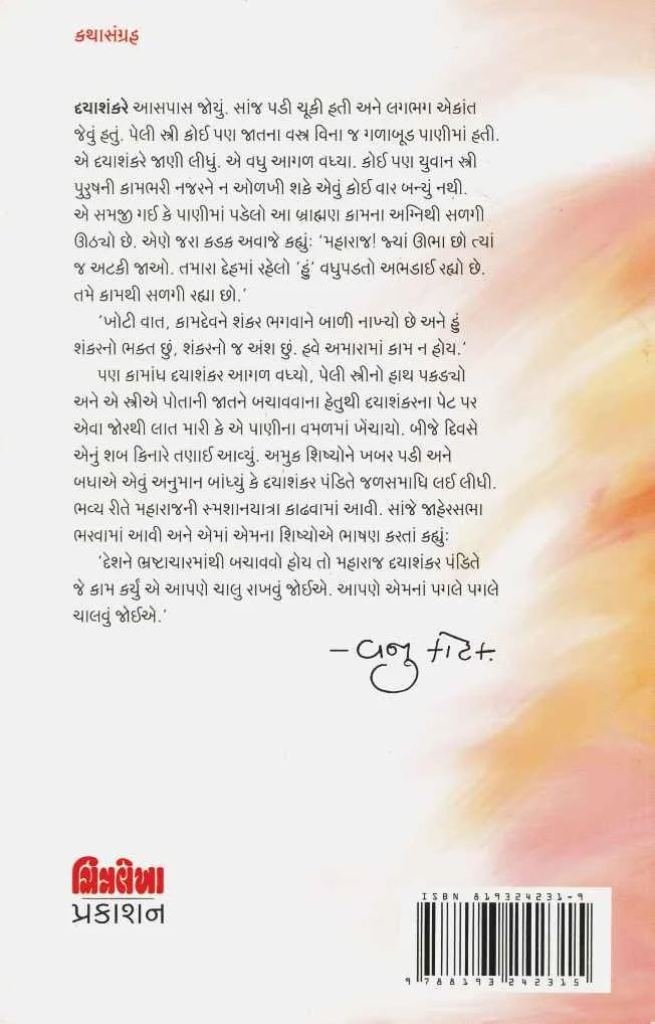 કથાસંગ્રહ
દયાશંકરે આસપાસ જોયું. સાંજ પડી ચૂકી હતી અને લગભગ એકાંત
જેવું હતું. પેલી સ્ત્રી કોઈ પણ જાતના વસ્ત્ર વિના જ ગળાબૂડ પાણીમાં હતી.
એ દયાશંકરે જાણી લીધું. એ વધુ આગળ વધ્યા. કોઈ પણ યુવાન સ્ત્રી
પુરુષની કામભરી નજરને ન ઓળખી શકે એવું કોઈ વાર બન્યું નથી.
એ સમજી ગઈ કે પાણીમાં પડેલો આ બ્રાહ્મણ કામના અગ્નિથી સળગી
ઊઠ્યો છે. એણે જરા કડક અવાજે કહ્યું: 'મહારાજ! જ્યાં ઊભા છો ત્યાં
જ અટકી જાઓ. તમારા દેહમાં રહેલો 'હું' વધુપડતો અભડાઈ રહ્યો છે.
તમે કામથી સળગી રહ્યા છો.'
'ખોટી વાત, કામદેવને શંકર ભગવાને બાળી નાખ્યો છે અને હું
શંકરનો ભક્ત છું, શંકરનો જ અંશ છું. હવે અમારામાં કામ ન હોય.'
પણ કામાંધ દયાશંકર આગળ વધ્યો, પેલી સ્ત્રીનો હાથ પકડ્યો
અને એ સ્ત્રીએ પોતાની જાતને બચાવવાના હેતુથી દયાશંકરના પેટ પર
એવા જોરથી લાત મારી કે એ પાણીના વમળમાં ખેંચાયો. બીજે દિવસે
એનું શબ કિનારે તણાઈ આવ્યું. અમુક શિષ્યોને ખબર પડી અને
બધાએ એવું અનુમાન બાંધ્યું કે દયાશંકર પંડિતે જળસમાધિ લઈ લીધી.
ભવ્ય રીતે મહારાજની સ્મશાનયાત્રા કાઢવામાં આવી. સાંજે જાહેરસભા
ભરવામાં આવી અને એમાં એમના શિષ્યોએ ભાષણ કરતાં કહ્યું:
'દેશને ભ્રષ્ટાચારમાંથી બચાવવો હોય તો મહારાજ દયાશંકર પંડિતે
જે કામ કર્યું એ આપણે ચાલુ રાખવું જોઈએ. આપણે એમનાં પગલે પગલે
ચાલવું જોઈએ.'
– વજુ કોટક
ચિત્રલેખા
પ્રકાશન
ISBN 819324231-9
9 788193 242315